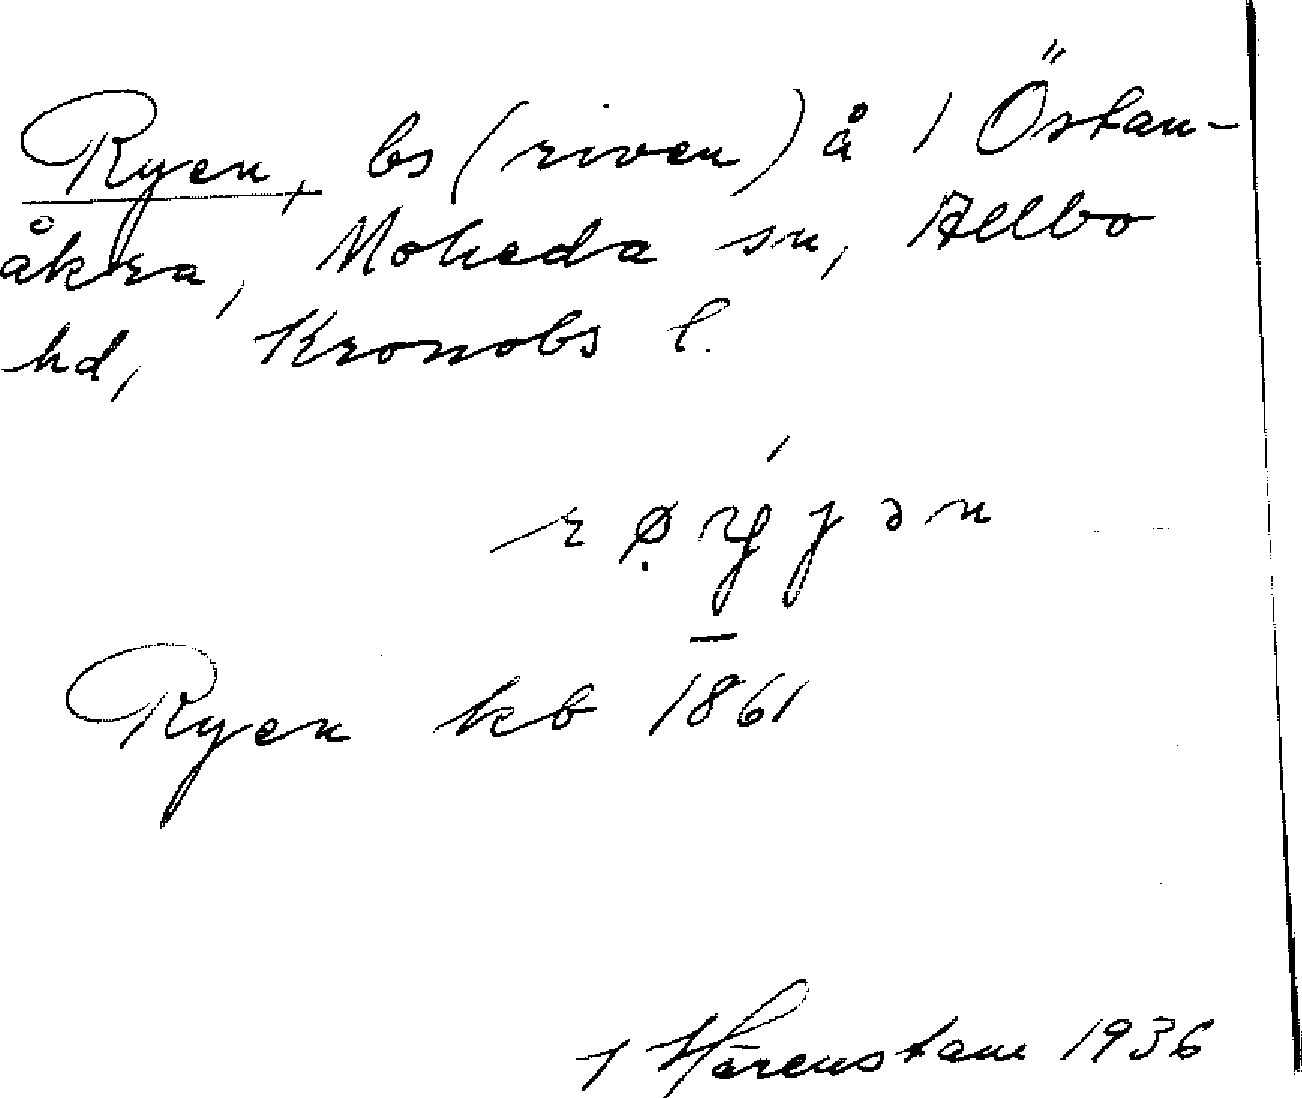 Ryen, bs (riven) å 1 Östan-
åkra, Moheda sn, Allbo
hd, Kronobs l.
Ryen kb 1861
Härenstam 1936